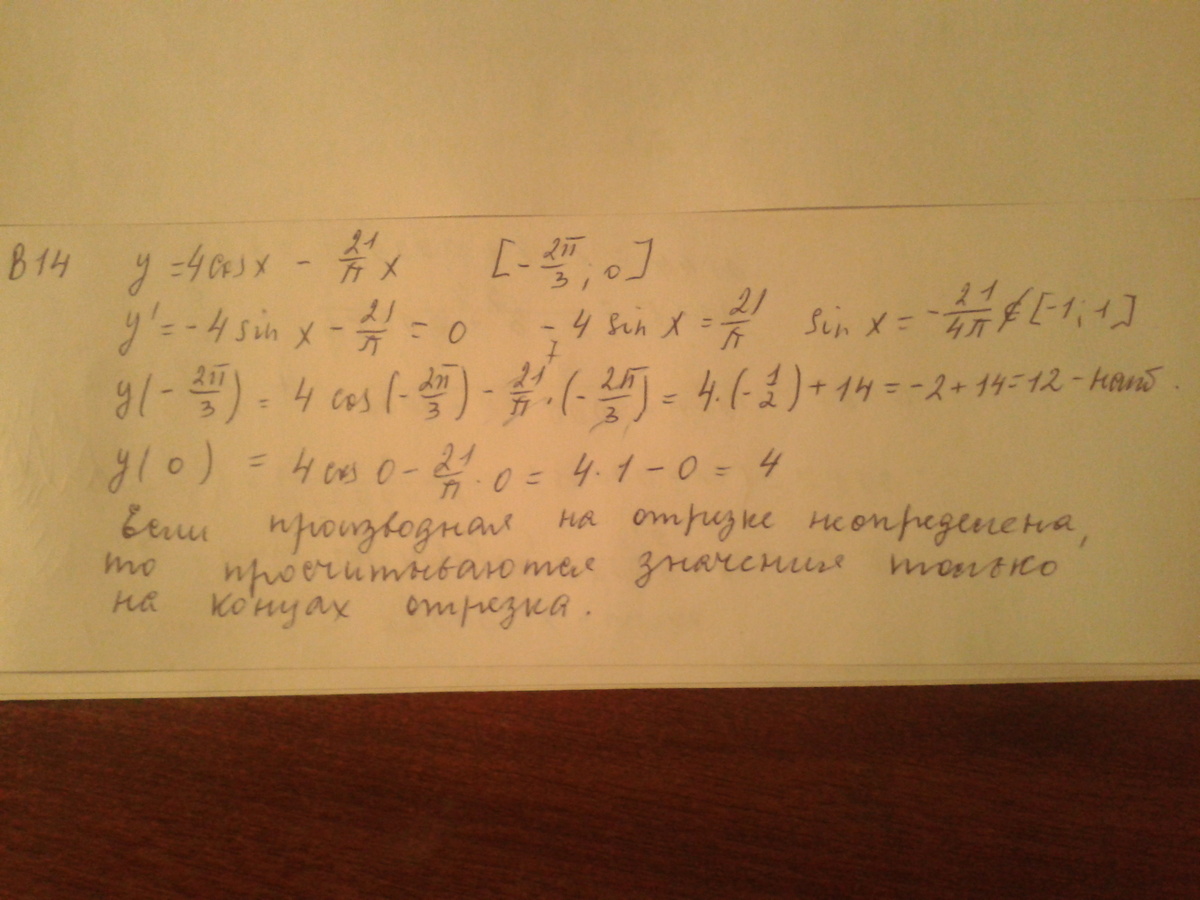 В14 y = 4cosx - 21/π x [-2π/3; 0]
y' = -4 sin x - 21/π = 0 -4 sin x = 21/π sin x = -21/4π ∉ [-1; 1]
y(-2π/3) = 4 cos(-2π/3) - 21/π · (-2π/3) = 4·(-1/2) + 14 = -2+14=12 - наиб.
7
y(0) = 4 cos 0 - 21/π · 0 = 4·1 - 0 = 4
Если производная на отрезке неопределена,
то просчитываются значения только
на концах отрезка.